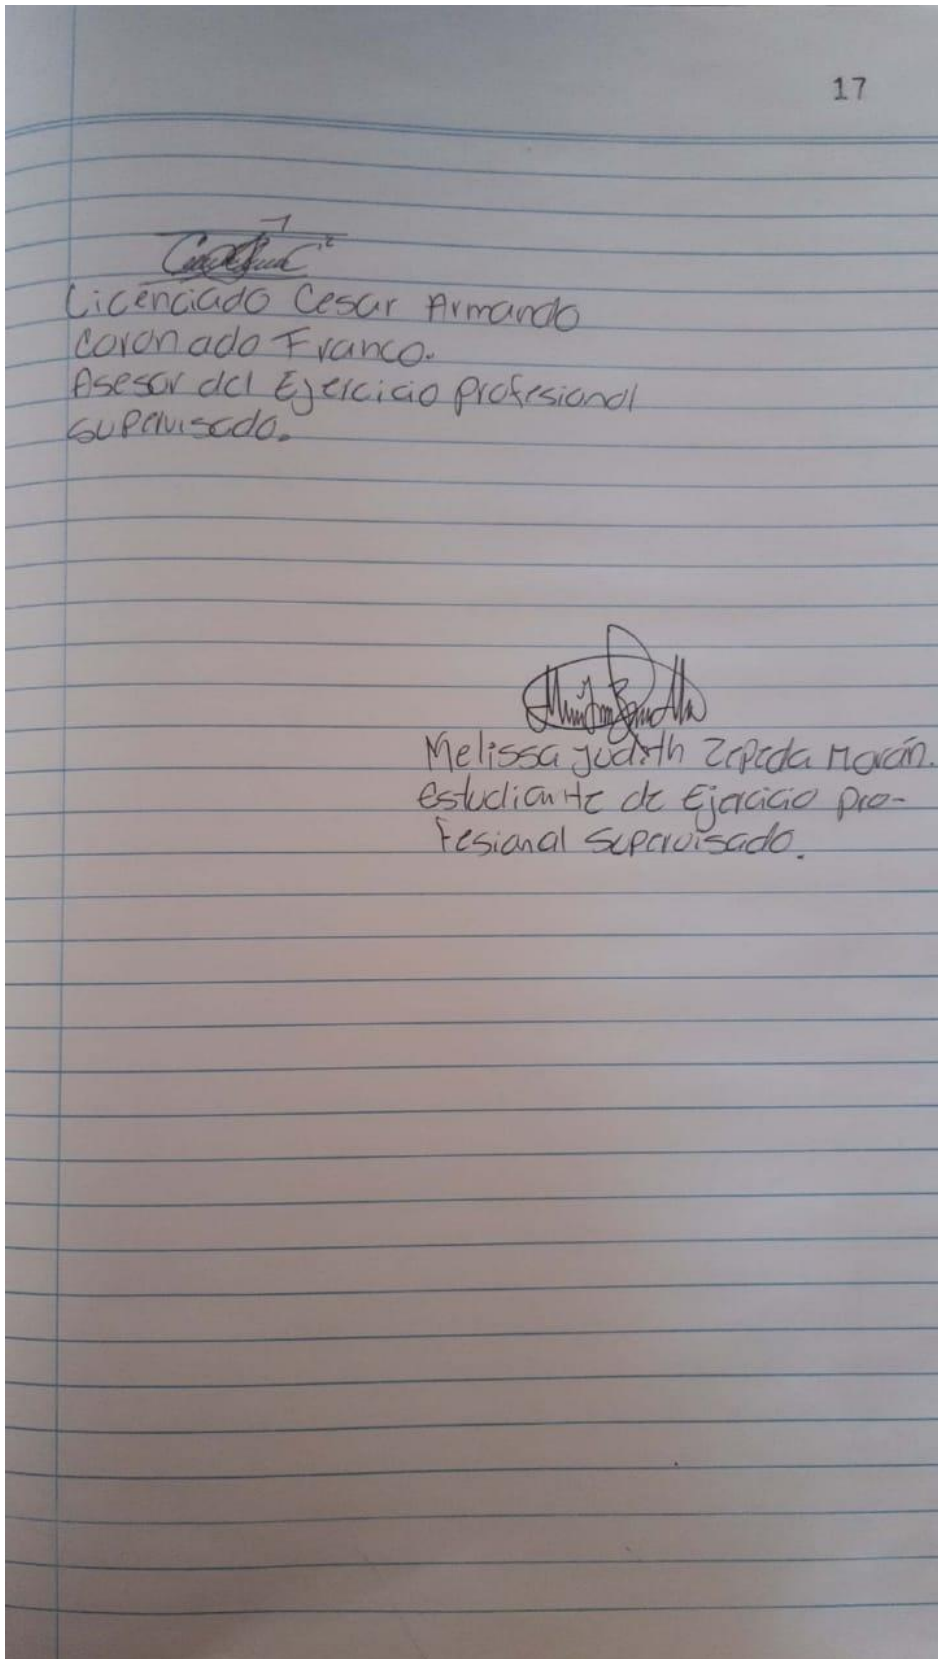 17
Licenciado Cesar Armando
Coronado Franco.
Asesor del Ejercicio profesional
supervisado.
Melissa Judith Zepeda Morán.
estudiante de Ejercicio pro-
fesional supervisado.